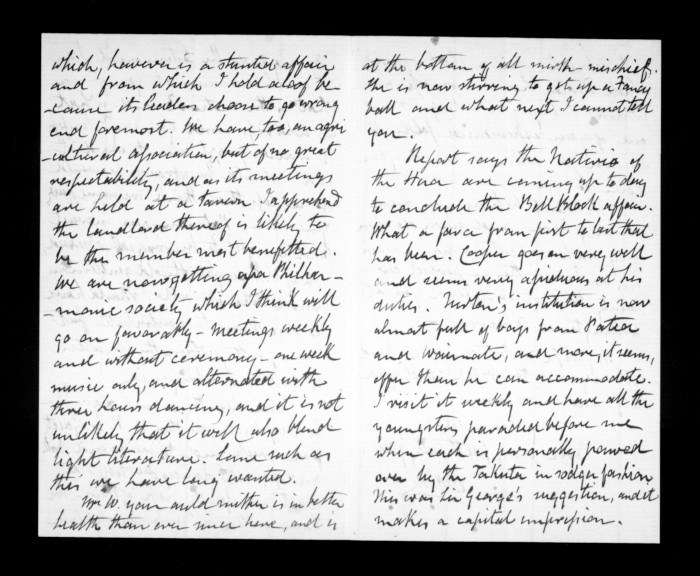 which, however is a stunted affair
and from which I hold aloof be-
-cause its leaders choose to go wrong
end foremost. We have too, an agri
-cultural association, but of no great
respectability, and as its meetings
are held at a tavern I apprehend
the landlord thereof is likely to
be the member most benefitted.
We are now getting up a Philhar-
-monic society which I think will
go on favorably - meetings weekly
and without ceremony - one week
music only, and alternated with
three hours dancing, and it is not
unlikely that it will also blend
light literature. Some such as
this we have long wanted.
Mrs W. your auld mither is in better
health than ever since here, and is
at the bottom of all mirth & mischief.
She is now stirring to get up a Fancy
ball and what next I cannot tell
you.
Report says the Natives of
the Hua are coming up to day
to conclude the Bell Block affair.
What a farce from first to last that
has been. Cooper goes on very well
and seems very assiduous at his
duties. institution is now
almost full of boys from Patea
and Waimate, and more, it seems,
offer than he can accommodate.
I visit it weekly and have all the
youngsters paraded before me
when each is personally
over by the Takuta in sodger fashion
This was Sir George's suggestion, and it
makes a capital impression.